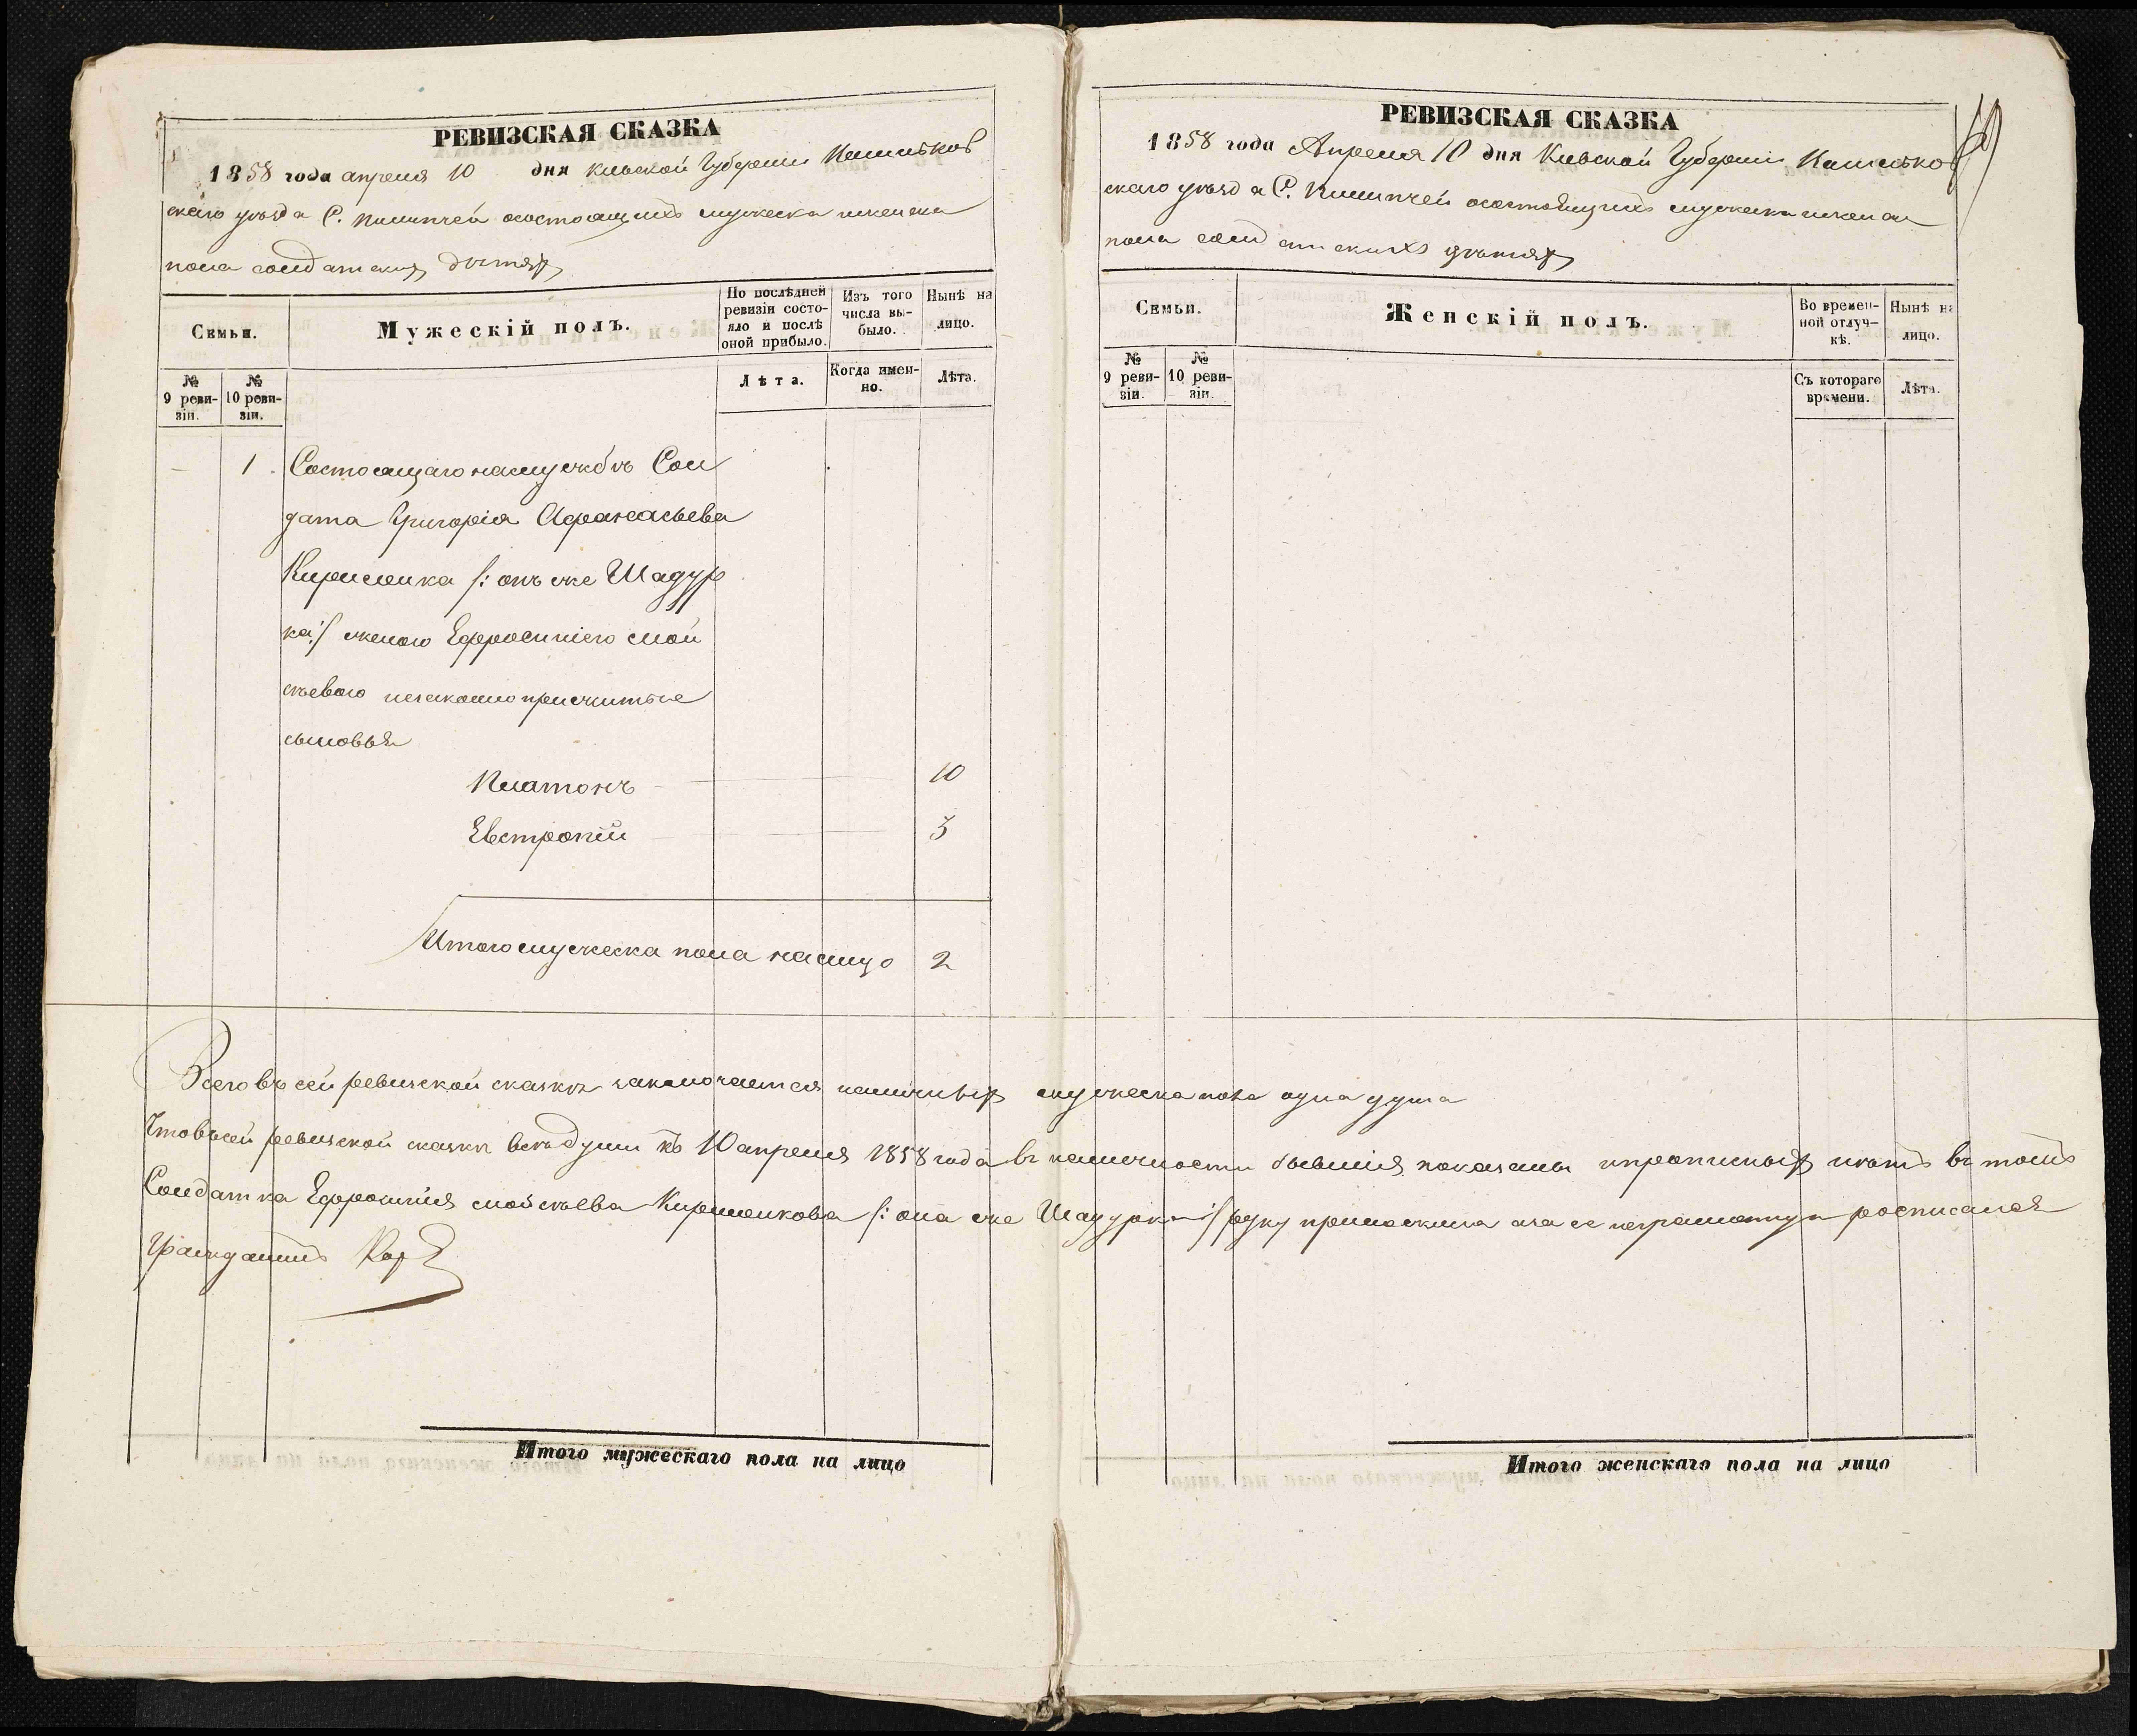 РЕВИЗСКАЯ СКАЗКА
1858 года апреля 10 дня Кіевской Губерніи
скаго уѣзда С. осостоящихъ мужеска иженска
пола солдатских дѣтях
Семьи.
Мужескій полъ.
По послѣдней ревизіи состояло и послѣ оной прибыло.
Изъ того числа выбыло.
Нынѣ на лицо.
№ 9 ревизіи.
№ 10 ревизіи.
Лѣта.
Когда именно.
Лѣта.
— 1 Состоящаго наслужбѣ Сол
дата Григорія Афанасьева
Кириленка /: онъ же Шадур
ка :/ женою Ефросиніею Мой
сѣевою незаконно прижитые
сыновья
Платонъ 10
Евстропій 3
Итого мужеска пола налицо 2
РЕВИЗСКАЯ СКАЗКА
1858 года Апреля 10 дня Кіевской Губерніи
скаго уѣзда С. осостоящихъ мужеска иженска
пола солдатскихъ дѣтях
Семьи.
Женскій полъ.
Во временной отлучкѣ.
Нынѣ на лицо.
№ 9 ревизіи.
№ 10 ревизіи.
Съ котораго времени.
Лѣта.
Всего въ сей ревизской сказкѣ заключается наличных мужеска пола одна душа
Чтовъсей ревизской сказкѣ всѣ души къ 10 апреля 1858 года въ наличности бывшія показаны ипрописных нѣтъ въ томъ
Солдатка Ефросинія Мойсѣева Кириленкова /: она же Шадурка :/ руку приложила аза ее неграмотную росписался
Итого мужескаго пола на лицо
Итого женскаго пола на лицо